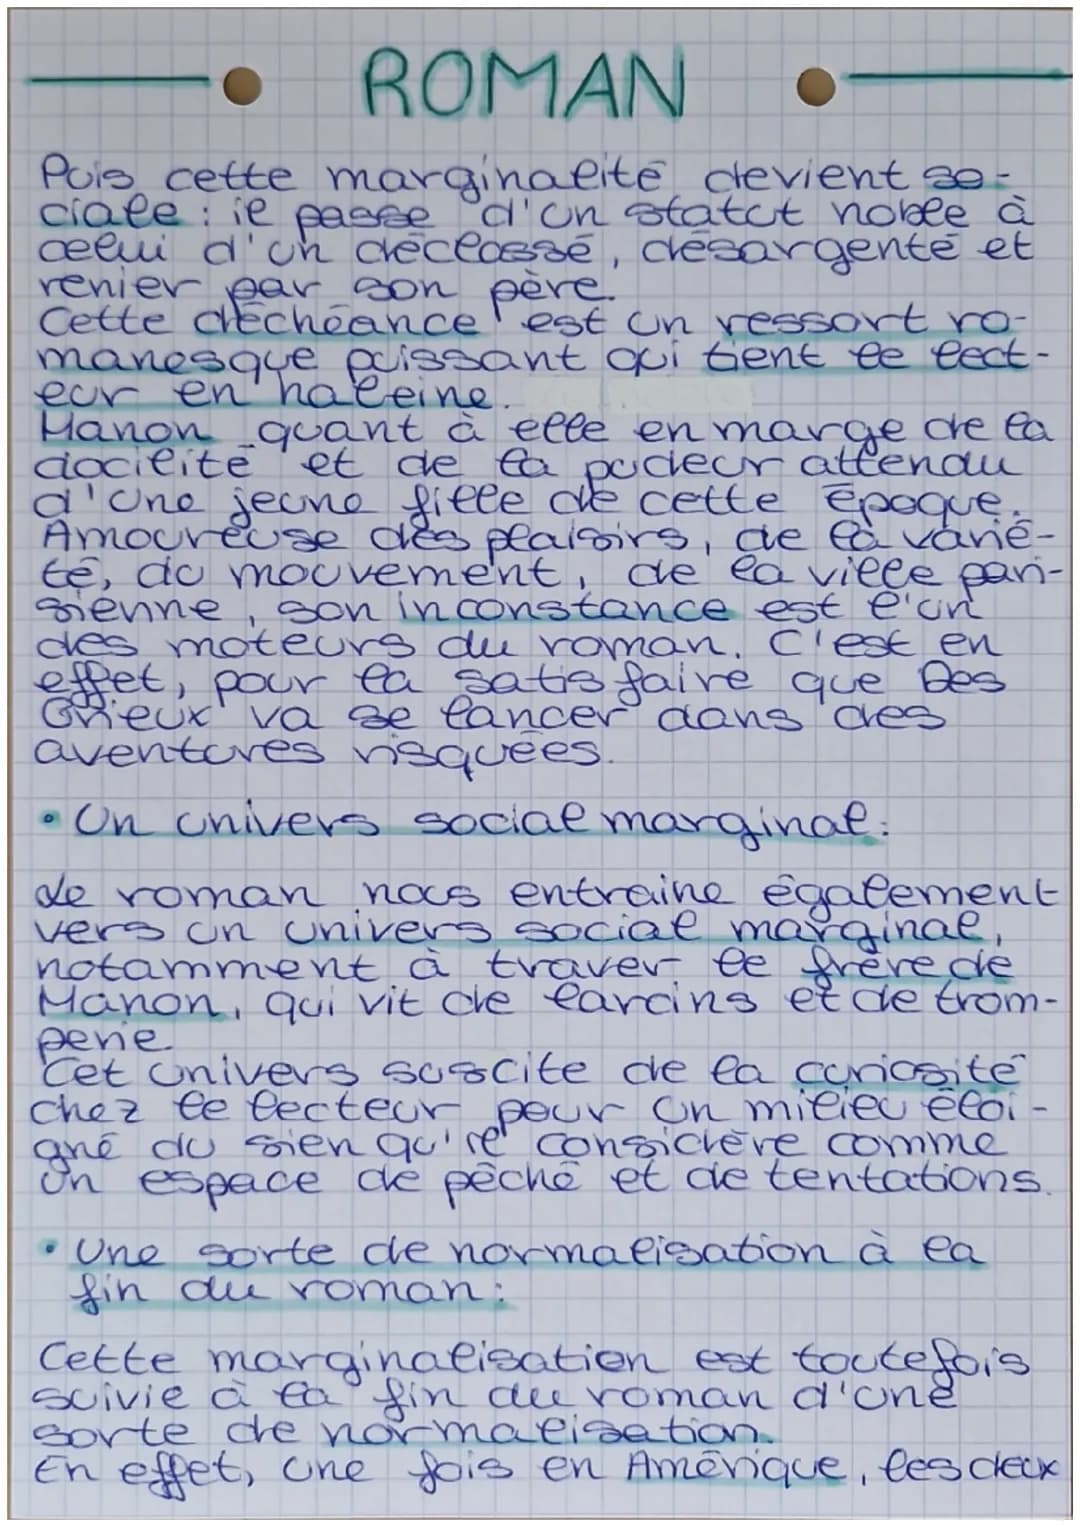 ROMAN
Puis cette marginalité devient so-
ciale : il passe d'un statut noble à
celui d'un déclassé, désargenté et
renier par son père.
Cette déchéance est un ressort ro-
manesque puissant qui tient le lect-
eur en haleine.
Manon quant à elle en marge de la
docilité et de la pudeur attendu
d'une jeune fille de cette époque.
Amoureuse des plaisirs, de la varié-
té, du mouvement, de la ville pari-
sienne, son inconstance est l'un
des moteurs du roman. C'est en
effet, pour la satisfaire que Des
Grieux va se lancer dans des
aventures risquées.
• Un univers social marginal :
Le roman nous entraine également
vers un univers social marginal,
notamment à traver le frère de
Manon, qui vit de larcins et de trom-
perie.
Cet univers suscite de la curiosité
chez le lecteur pour un milieu éloi-
gné du sien qu'il considère comme
un espace de péché et de tentations.
• Une sorte de normalisation à la
fin du roman :
Cette marginalisation est toutefois
suivie à la fin du roman d'une
sorte de normalisation.
En effet, une fois en Amérique, les deux